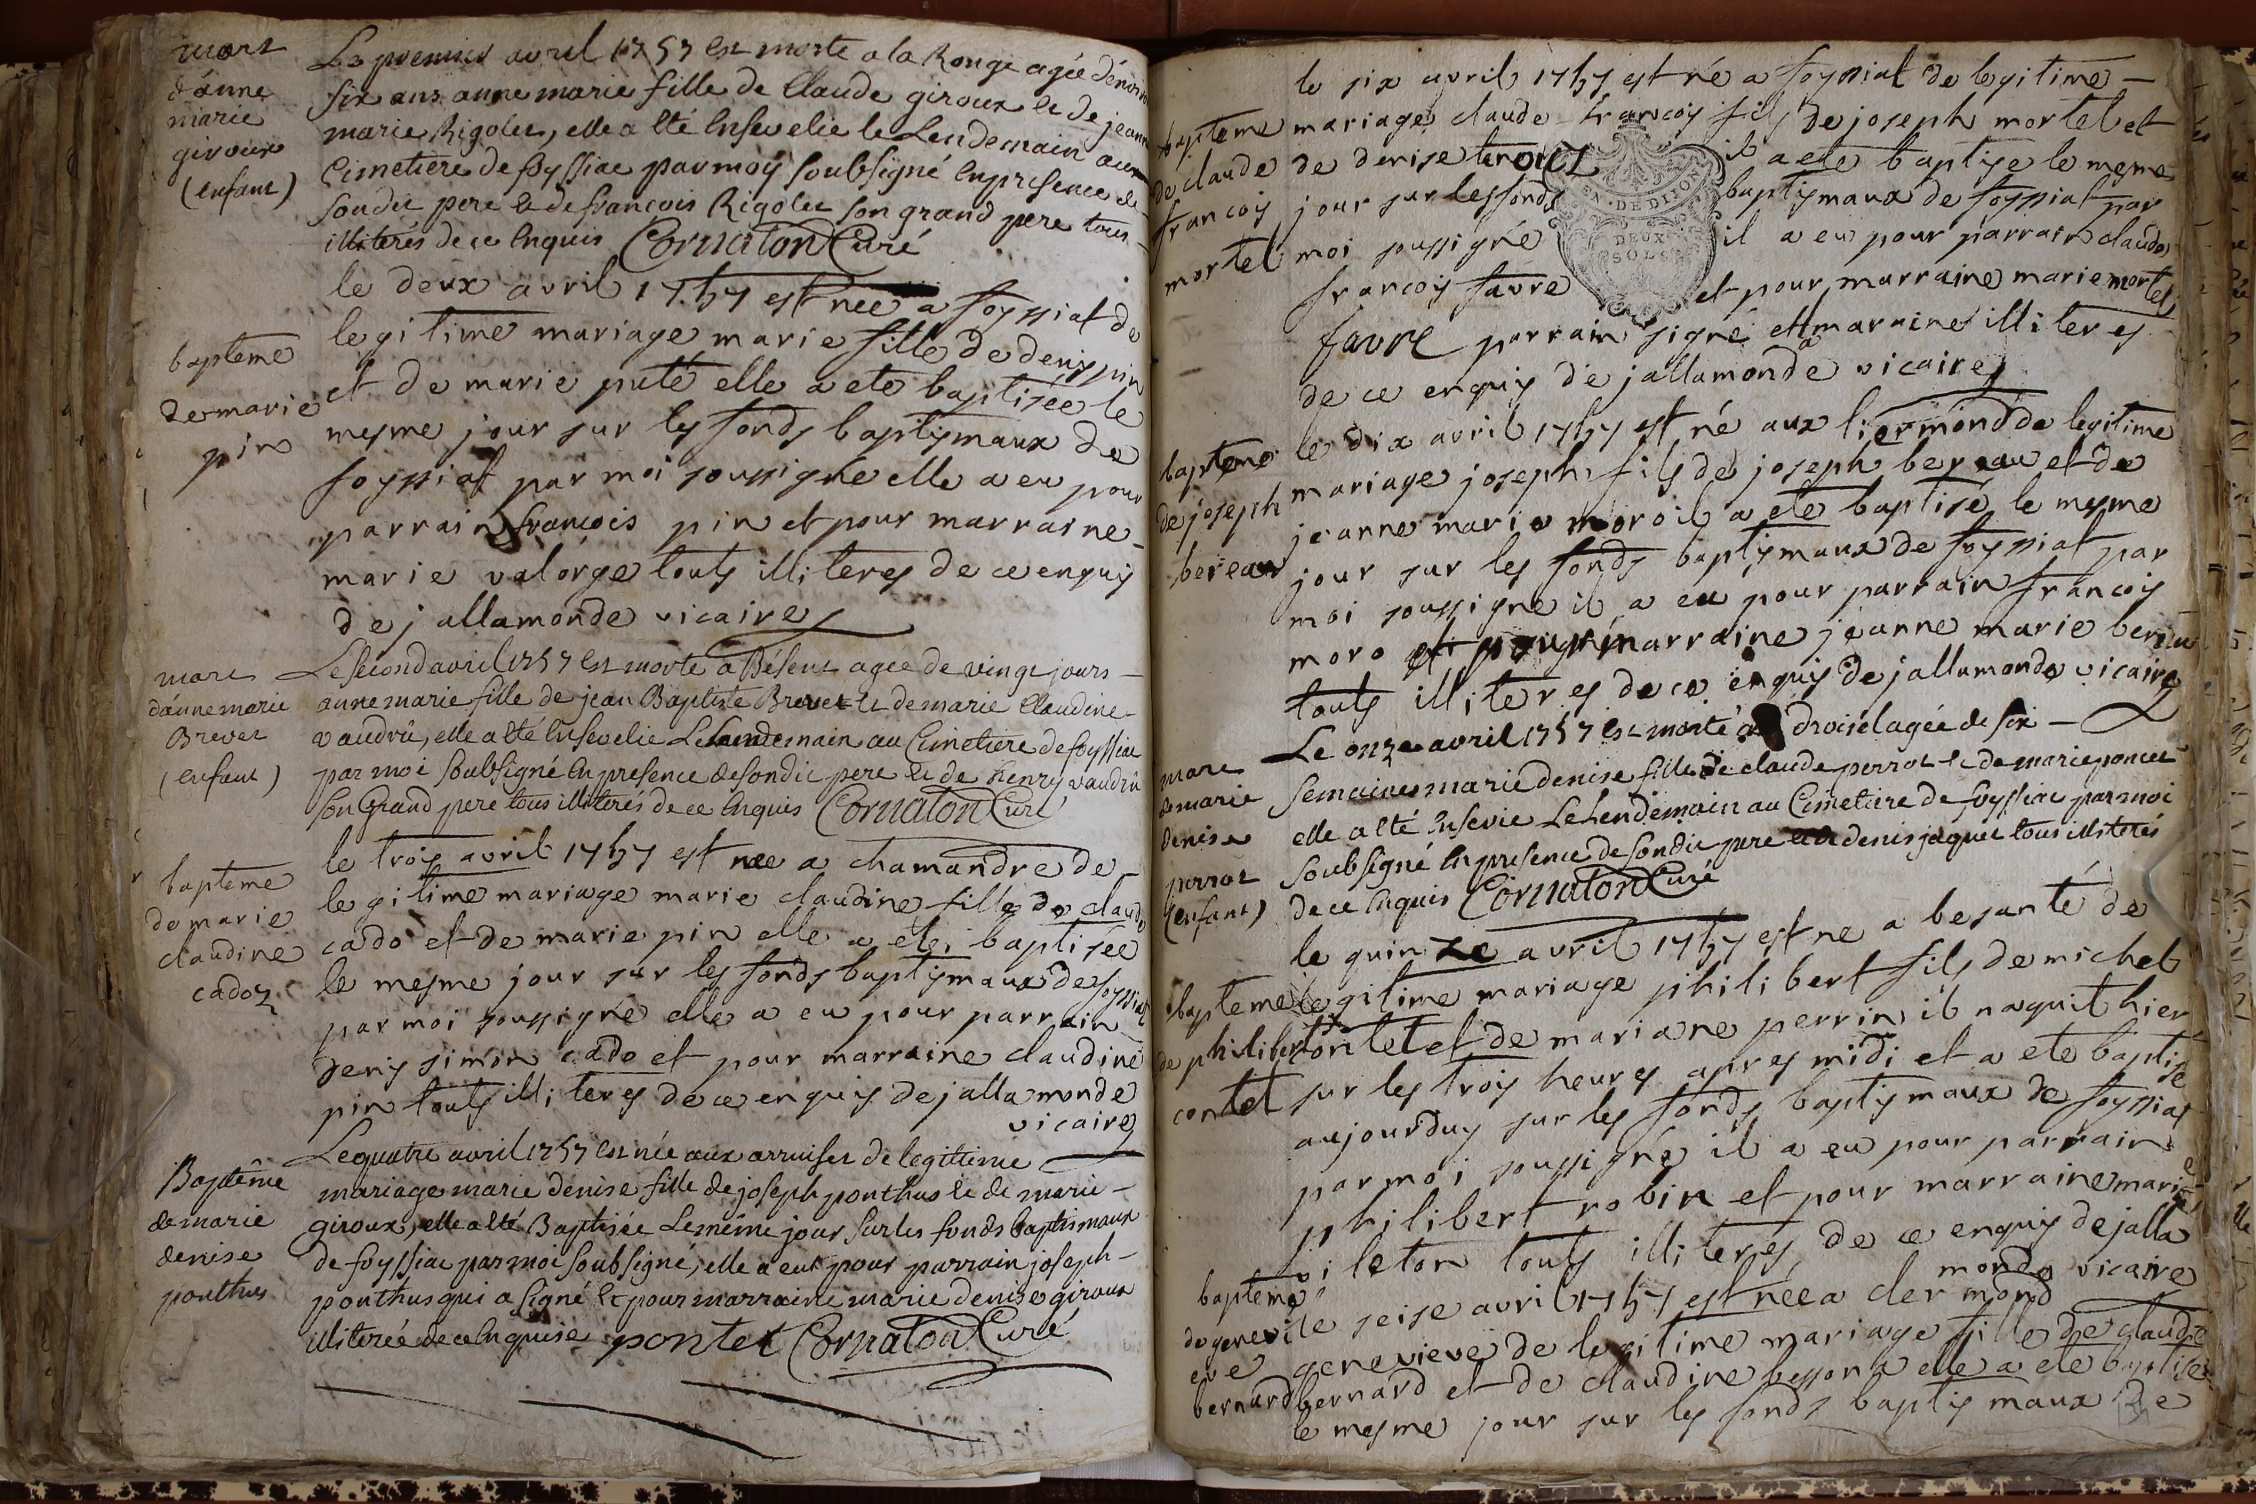 mort
d'anne
marie
giroux
(enfant)
Le premier avril 1757 est morte a la Ronge agée d'environ
six ans anne marie fille de Claude giroux et de jeanne
marie Rigolet, elle a eté Ensevelie le Lendemain au
Cimetiere de foyssiac par moÿ soubsigné En presence de
son dit pere et de françois Rigolet son grand pere tous
illiterés de ce Enquis Cornaton Curé
bapteme
de marie
pin
le deux avril 1757 est nee a foyssiat de
legitime mariage marie fille de denys pin
et de marie puté elle a ete baptisée le
mesme jour sur les fonds baptismaux de
foyssiat par moi soussigné elle a eu pour
parrain françois pin et pour marraine
marie valorge touts illiteres de ce enquis
dejallamonde vicaire
mort
d'anne marie
Brevet
(enfant)
Le second avril 1757 est morte a Bésent agée de vingt jours
anne marie fille de jean Baptiste Brevet et de marie Claudine
vaudrû, elle a eté Ensevelie Le Lendemain au Cimetiere de foyssiac
par moi soubsigné En presence de son dit pere et de henry vaudrû
son Grand pere tous illiterés de ce Enquis Cornaton Curé
bapteme
de marie
claudine
cadoz
le trois avril 1757 est nee a chamandre de
legitime mariage marie claudine fille de claude
cado et de marie pin elle a ete baptisée
le mesme jour sur les fonds baptismaux de foyssiat
par moi soussigné elle a eu pour parrain
denys simon cado et pour marraine claudine
pin touts illiteres de ce enquis dejallamonde
vicaire
Baptême
de marie
denise
ponthus
Le quatre avril 1757 est née aux arruiset de legitime
mariage marie denise fille de joseph ponthus et de marie
giroux, elle a eté Baptisée Le même jour sur les fonds baptismaux
de foyssiac par moi soubsigné, elle a eut pour parrain joseph
ponthus qui a signé et pour marraine marie denise giroux
illiterée de ce Enquise pontet Cornaton Curé
bapteme
de claude
francois
mortel
le six avril 1757 est né a foyssiat de legitime
mariage claude francois fils de joseph mortel et
de denise il a ete baptise le mesme
jour sur les fonds baptismaux de foyssiat par
moi sussigné il a eu pour parrain claude
francois favre et pour marraine marie mortel
favre parrain signé et marraine illiteres
de ce enquis dejallamonde vicaire
GEN. DE DIJON
DEUX
SOLS
bapteme
de joseph
bereau
le dix avril 1757 est né aux liermond de legitime
mariage joseph fils de joseph bereau et de
jeanne marie moro il a ete baptisé le mesme
jour sur les fonds baptismaux de foyssiat par
moi soussigne il a eu pour parrain francois
moro et pour marraine jeanne marie bereau
touts illiteres de ce enquis dejallamonde vicaire
mort
de marie
denise
perrot
(enfant)
Le onze avril 1757 est morte a droisel agée de six
semaines marie denise fille de claude perrot et de marie poncet
elle a eté Ensevie Le Lendemain au Cimetiere de foyssiac par moi
soubsigné En presence de son dit pere et de denis jaquet tous illiterés
de ce Enquis Cornaton Curé
bapteme
de philibert
contet
le quinze avril 1757 est ne a besanté de
legitime mariage philibert fils de michel
contet et de mariane perrin il naquit hier
sur les trois heures apres midi et a ete baptise
aujourduy sur les fonds baptismaux de foyssiat
par moi soussigné il a eu pour parrain
philibert robin et pour marraine marie
vileton touts illiteres de ce enquis dejalla
monde vicaire
bapteme
de genevi
eve
bernard
le seise avril 1757 est née a clermond
genevieve de legitime mariage fille de claude
bernard et de claudine bessona elle a ete baptisee
le mesme jour sur les fonds baptismaux de